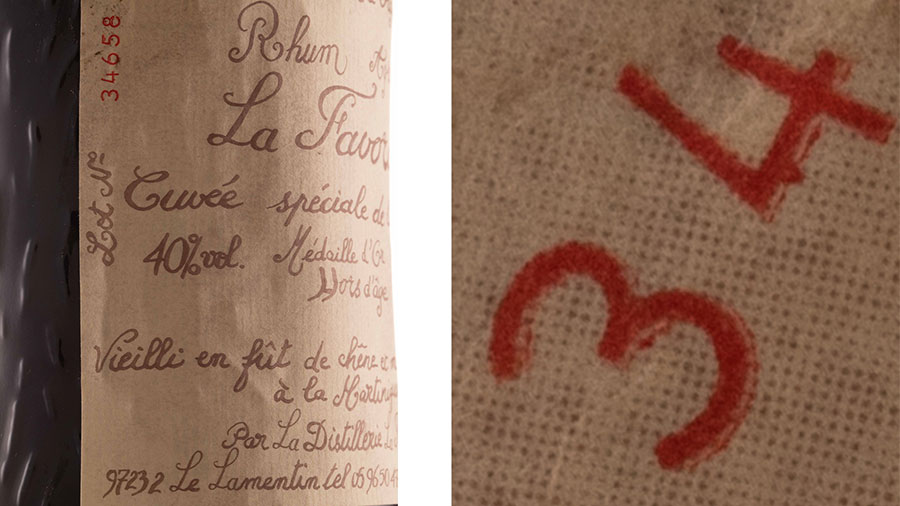 34658
Rhum
La Favor
Lot N°
Cuvée spéciale de
40% vol. Médaille d'Or
Hors d'âge
Vieilli en fût de chêne et
à la Martiniq
Par La Distillerie La
97232 Le Lamentin tel 05 96 50 4
3 4